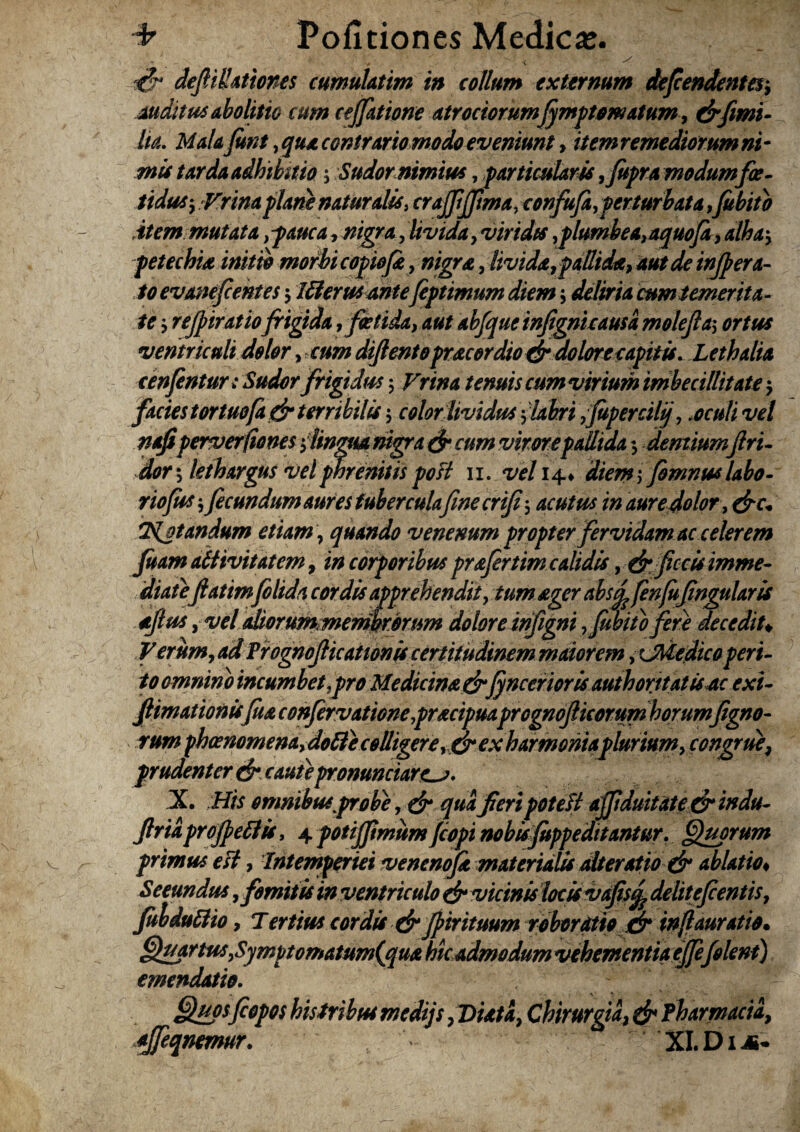 Poſitiones Medicæ.
& deſtillationes cumulatim in collum externum deſcendentes;
auditus abolitio cum ceſſatione atrociorum ſymptomatum, & ſimi-
lia. Mala ſunt, quæ contrario modo eveniunt, item remediorum ni-
mis tarda adhibitio; Sudor nimius, particularis, ſupra modum fœ-
tidus; Vrina plane naturalis, craſſiſſima, confuſa, perturbata, ſubitò
item mutata, pauca, nigra, livida, viridis, plumbea, aquoſa, alba;
petechiæ initio morbi copioſæ, nigræ, lividæ, pallidæ, aut de inſpera-
to evaneſcentes; Icterus ante ſeptimum diem; deliria cum temerita-
te; reſpiratio frigida, fœtida, aut abſque inſigni causâ moleſta; ortus
ventriculi dolor, cum diſtento præcordio & dolore capitis. Lethalia
cenſentur: Sudor frigidus; Vrina tenuis cum virium imbecillitate;
facies tortuoſa & terribilis; color lividus; labri, ſupercilij, oculi vel
naſi perverſiones; lingua nigra & cum virore pallida; dentium ſtri-
dor; lethargus vel phrenitis poſt 11. vel 14. diem; ſomnus labo-
rioſus; ſecundum aures tubercula ſine criſi; acutus in aure dolor, &c.
Notandum etiam, quando venenum propter fervidam ac celerem
ſuam activitatem, in corporibus præſertim calidis, & ſiccis imme-
diatè ſtatim ſolida cordis apprehendit, tum æger absq; ſenſu ſingularis
æſtus, vel aliorum membrorum dolore inſigni, ſubitò ferè decedit.
Verùm, ad Prognoſticationis certitudinem maiorem, Medico peri-
to omninò incumbet, pro Medicinæ & ſyncerioris authoritatis ac exi-
ſtimationis ſuæ conſervatione, præcipua prognoſticorum horum ſigno-
rum phœnomena, doctè colligere, & ex harmonia plurium, congruè,
prudenter & cautè pronunciare.
X. His omnibus probè, & quâ fieri poteſt aſſiduitate & indu-
ſtriâ proſpectis, 4 potiſſimùm ſcopi nobis ſuppeditantur. Quorum
primus eſt, Intemperiei venenoſæ materialis alteratio & ablatio.
Secundus, fomitis in ventriculo & vicinis locis vaſisq; delitefcentis,
ſubductio, Tertius cordis & ſpirituum roboratio & inſtauratio.
Quartus, Symptomatum (quæ hic admodum vehementia eſſe ſolent)
emendatio.
Quos ſcopos his tribus medijs, Diætâ, Chirurgiâ, & Pharmaciâ,
aſſequemur. XI. DIÆ-